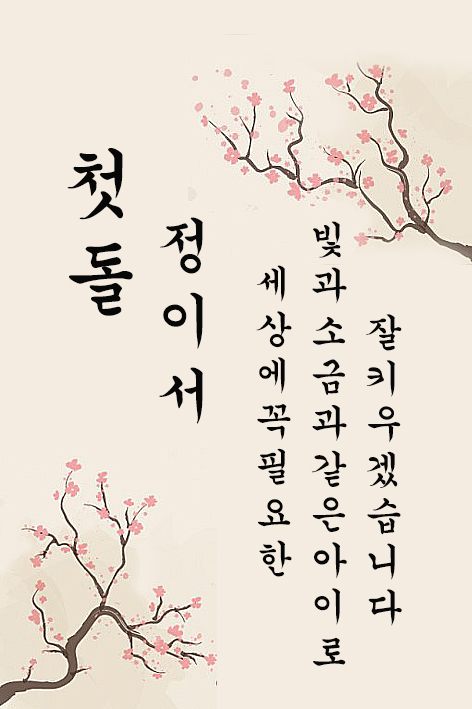 첫돌
정이서
세상에꼭필요한
빛과소금과같은아이로
잘키우겠습니다